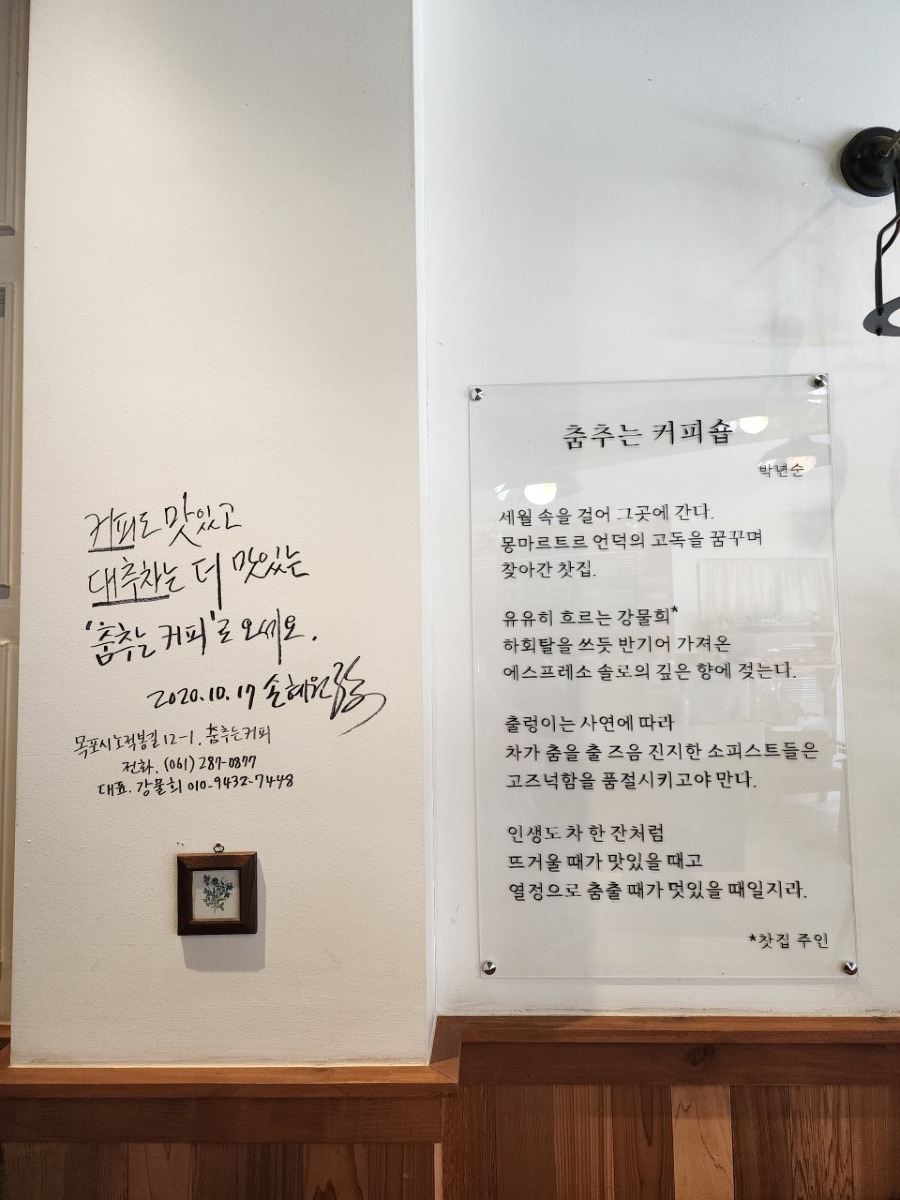 커피도 맛있고
대추차는 더 맛있는
'춤추는 커피'로 오세요.
2020.10.17 손혜원
목포시 노적봉길 12-1. 춤추는커피
전화. (061) 287-0377
대표. 강물희 010-9432-7448
춤추는 커피숍
박년순
세월 속을 걸어 그곳에 간다.
몽마르트르 언덕의 고독을 꿈꾸며
찾아간 찻집.
유유히 흐르는 강물희*
하회탈을 쓰듯 반기어 가져온
에스프레소 솔로의 깊은 향에 젖는다.
출렁이는 사연에 따라
차가 춤을 출 즈음 진지한 소피스트들은
고즈넉함을 품절시키고야 만다.
인생도 차 한 잔처럼
뜨거울 때가 맛있을 때고
열정으로 춤출 때가 멋있을 때일지라.
*찻집 주인